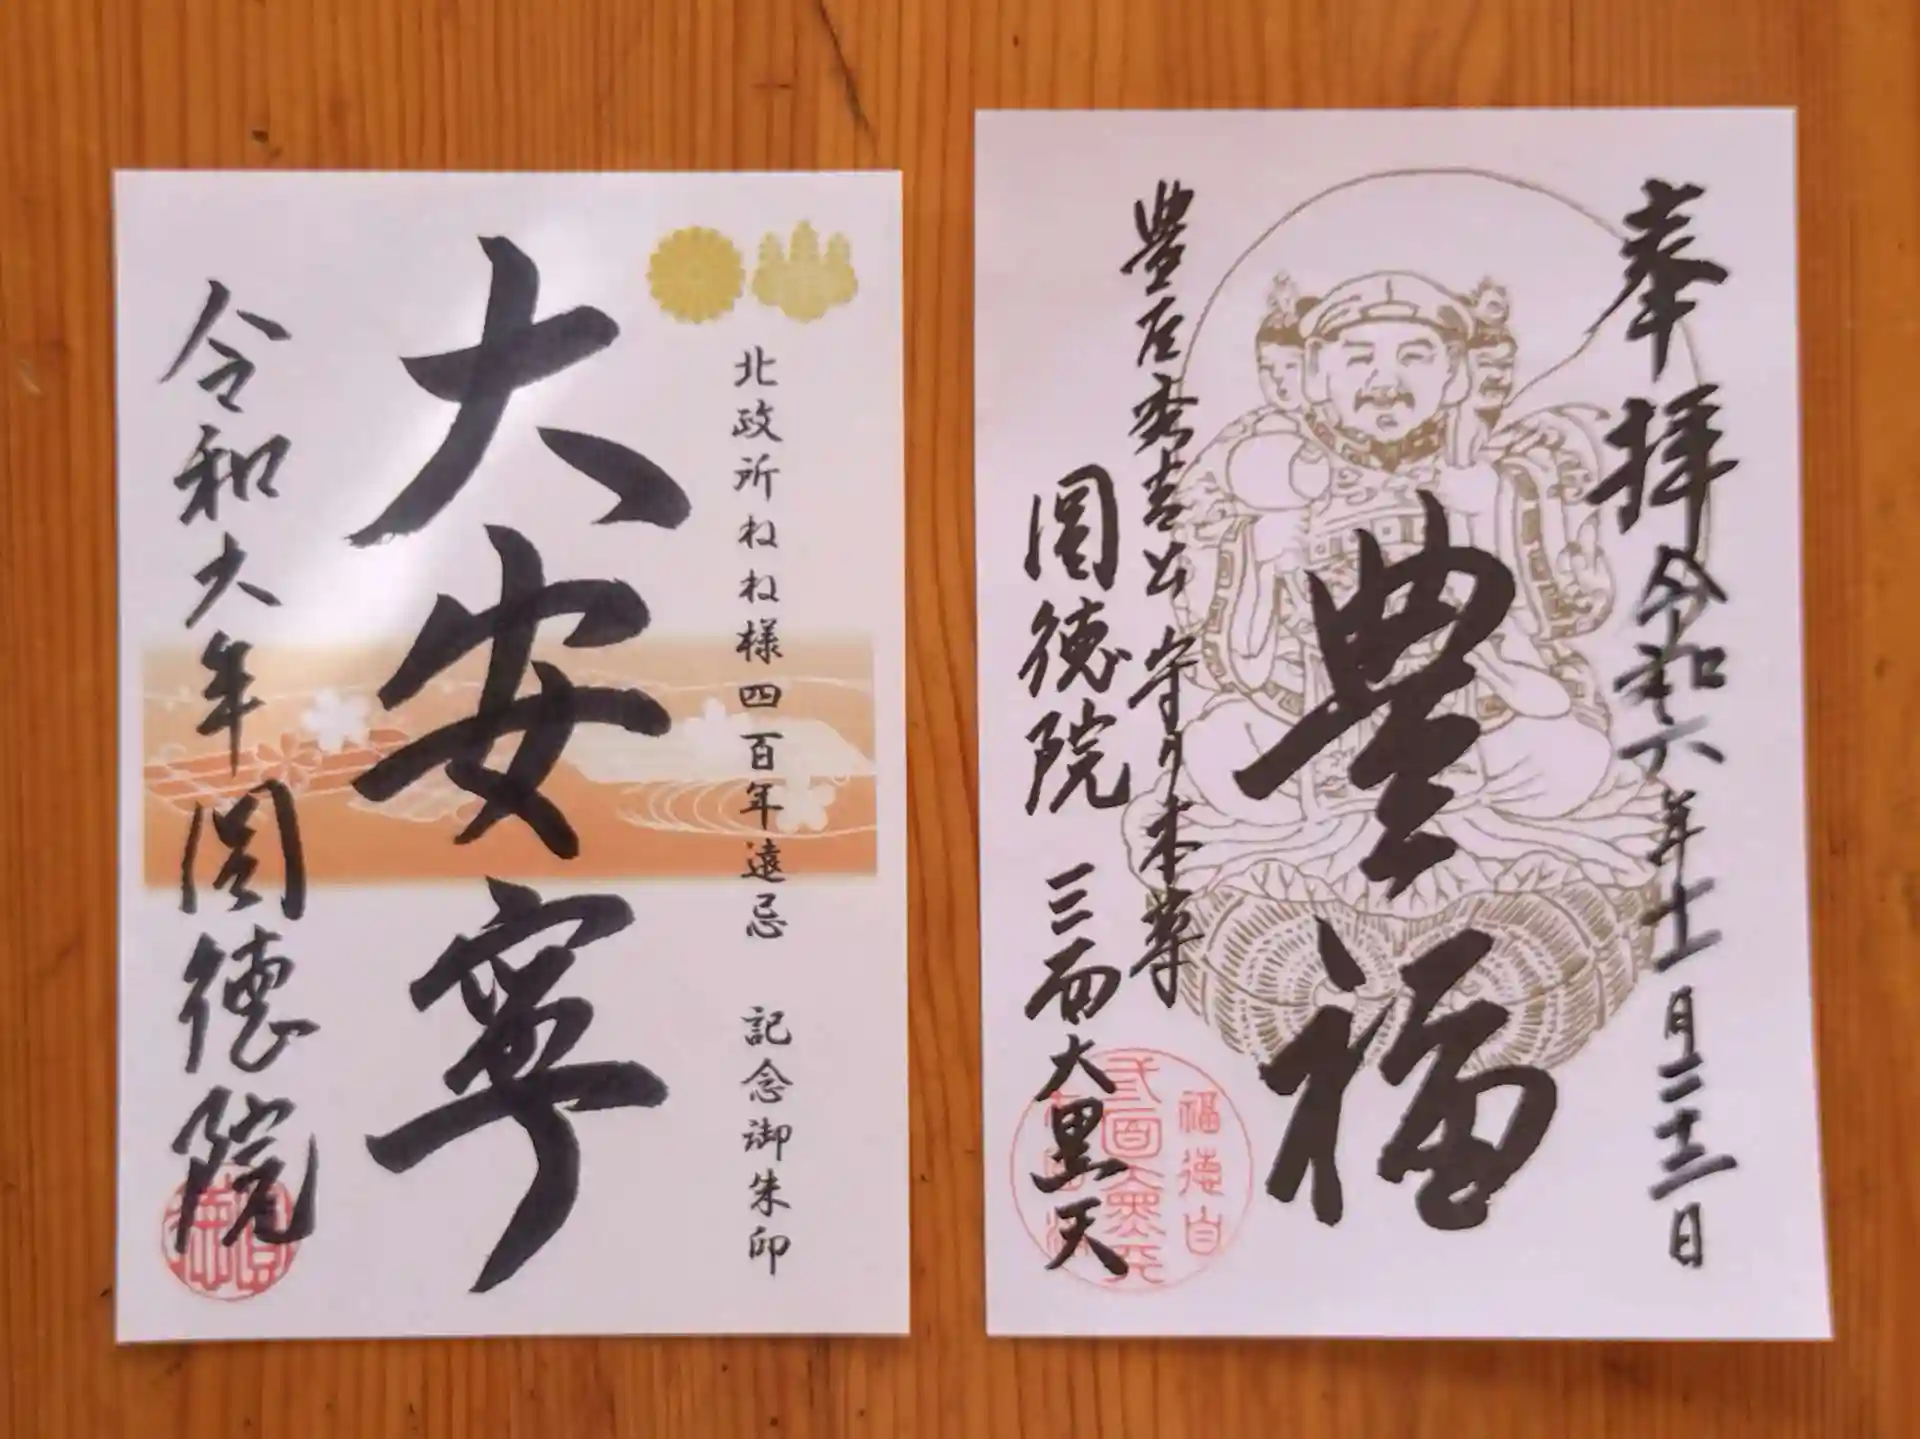 北政所ねね様四百年遠忌 記念御朱印
大安寧
令和六年 圓徳院
奉拝 令和六年十一月二十三日
豊福
豊臣秀吉公 守り本尊
圓徳院 三面大黒天
福徳自